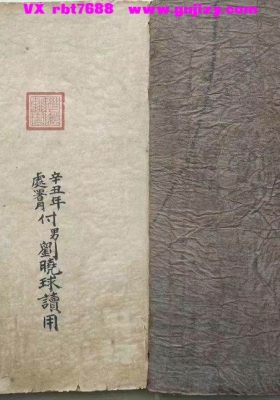 VX rbt7688 www.gujizy.com
辛丑年
處暑月付男劉曉球讀用